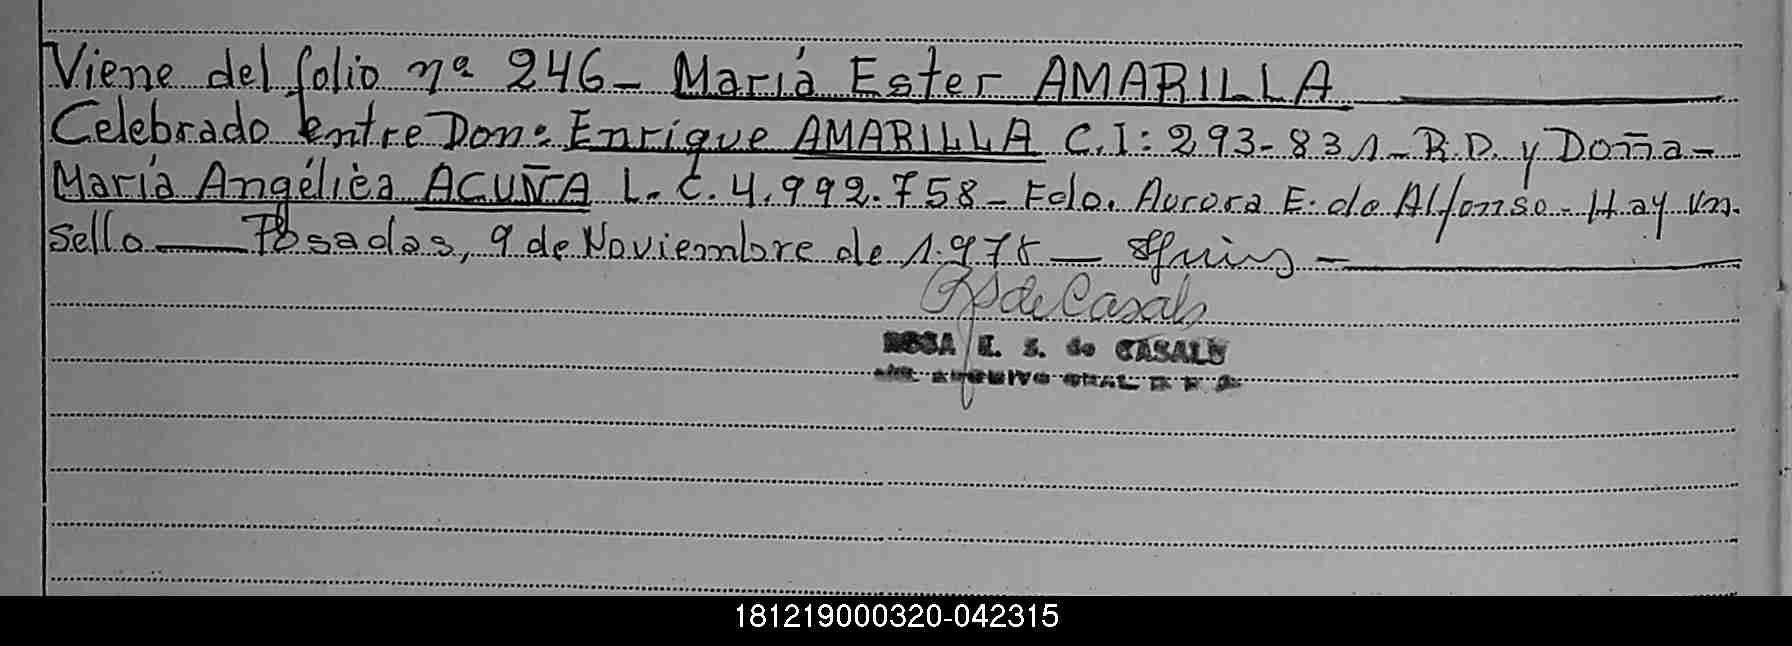 Viene del folio nº 246- María Ester AMARILLA
Celebrado entre Don: Enrique AMARILLA C.I: 293-831- B.D. y Doña-
María Angélica ACUÑA L.C. 4.992.758- Fdo. Aurora E. de Alfonso- Hay un
sello — Posadas, 9 de Noviembre de 1.978 —
RS de Casals
ROSA E. S. de CASALS
ARCHIVO GRAL
181219000320-042315